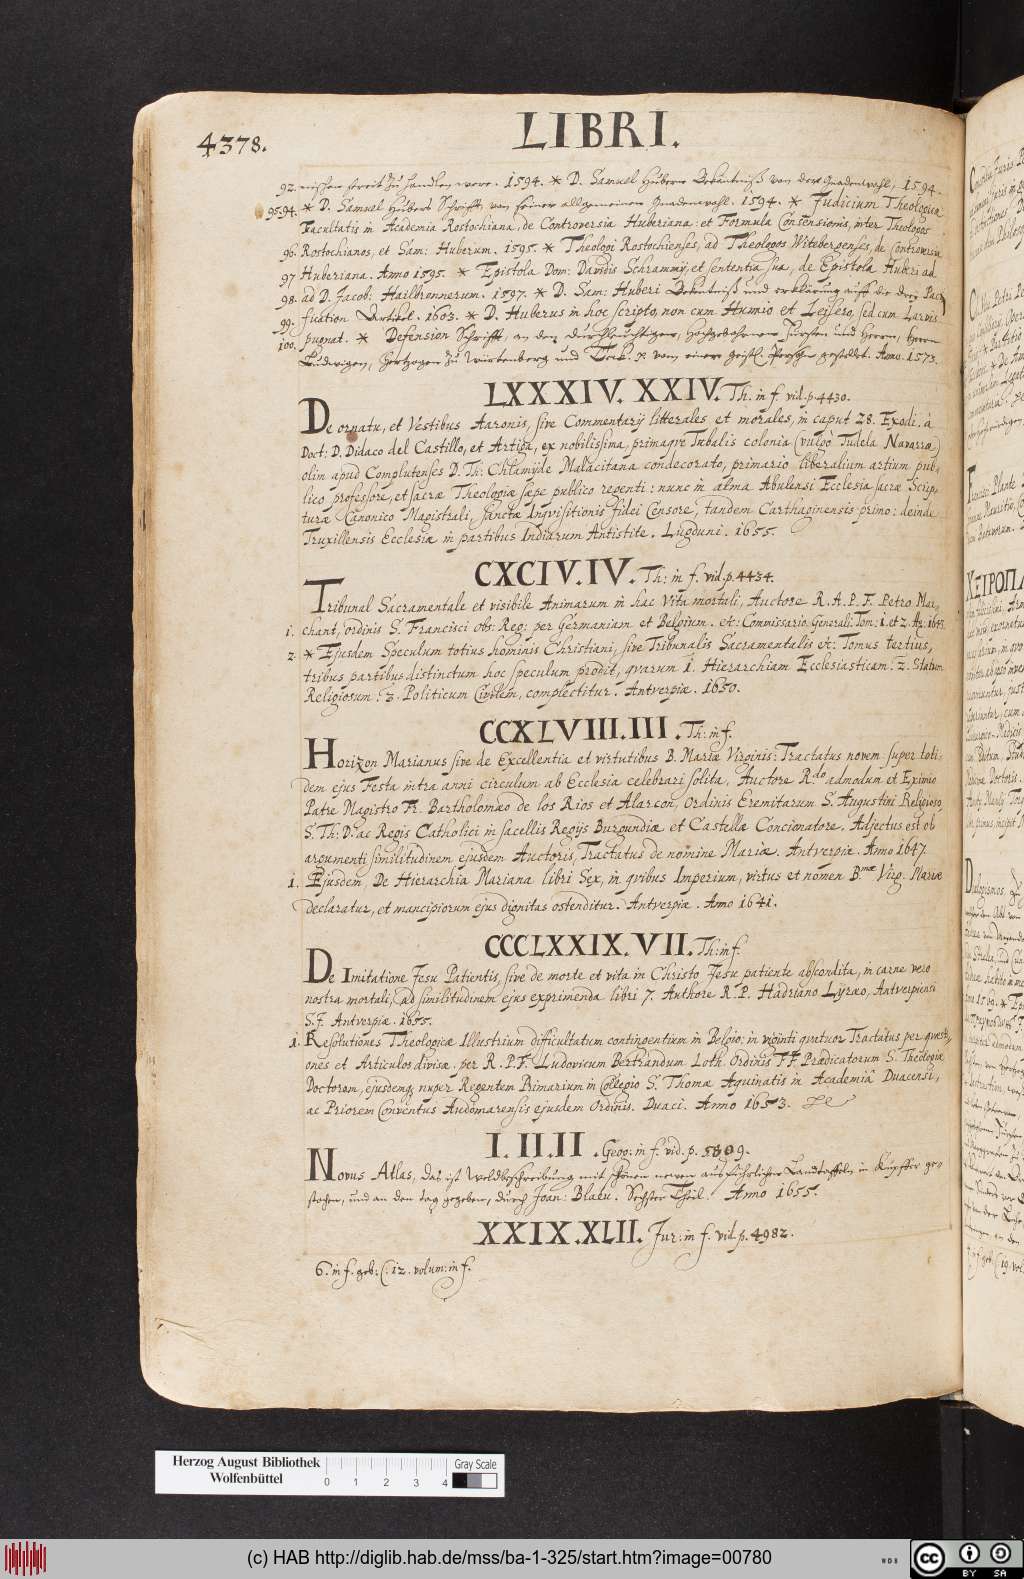 4378.
LIBRI.
92. nischen streit zu handlen were. 1594. * D. Samuel Hubern Bekäntniß von der Gnadenwahl, 1594.
95.94. * D. Samuel Hubers Schrifft, von seiner allgemeinen Gnadenwahl. 1594. * Judicium Theologicæ
Facultatis in Academia Rostochiana, de Controversia Huberiana: et Formula Consensionis, inter Theologos
96. Rostochianos, et Sam: Huberum. 1595. * Theologi Rostochienses, ad Theologos Witebergenses, de Controversia
97 Huberiana. Anno 1595. * Epistola Dom: Davidis Schrammij, et sententia sua, de Epistola Huberi ad
98. ad D. Jacob: Hailbronnerum. 1597. * D. Sam: Huberi Bekentniß und erklärung auff die drey
99. Artikel. 1603. * D. Huberus in hoc scripto, non cum Hunnio et Leisero, sed cum Larvis
100. pugnat. * Defension Schrifft, an den Durchleuchtigen, Hochgebohrnen Fursten und Herrn, Herrn
Ludwigen, Hertzogen zu Würtenberg und Teck. von einer geistl. Person gestellet. Anno. 1573.
LXXXIV. XXIV. Th. in f. vid. p. 4430.
De ornatu, et Vestibus Aaronis, sive Commentarij litterales et morales, in caput 28. Exodi. à
Doct: D. Didaco del Castillo, et Artiga, ex nobilissima, primaqve Tubalis colonia (vulgò Tudela Navarræ)
olim apud Complutenses D. Th: Chlamyde Malacitana condecorato, primario liberalium artium pub-
lico professore, et sacræ Theologiæ sæpe publico regenti: nunc in alma Abulensi Ecclesia sacræ Scrip-
turæ Canonico Magistrali, sanctæ Inqvisitionis fidei Censore, tandem Carthaginensis primo: deinde
Truxillensis Ecclesiæ in partibus Indiarum Antistite. Lugduni. 1655.
CXCIV. IV. Th: in f. vid. p. 4434.
Tribunal Sacramentale et visibile Animarum in hac Vita mortali, Auctore R. A. P. F. Petro Mar-
1. chant, ordinis S. Francisci obs: Reg: per Germaniam et Belgium. etc: Commissario Generali. Tom: 1. et 2. An: 1643.
2. * Ejusdem Speculum totius hominis Christiani, sive Tribunalis Sacramentalis etc: Tomus tertius,
tribus partibus distinctum hoc speculum prodit, qvarum 1. Hierarchiam Ecclesiasticam: 2. Statum
Religiosum: 3. Politicum Civilem, complectitur. Antverpiæ. 1650.
CCXLVIII. III. Th: in f.
Horizon Marianus sive de Excellentia et virtutibus B. Mariæ Virginis: Tractatus novem super toti-
dem ejus Festa intra anni circulum ab Ecclesia celebrari solita. Auctore Rdo admodum et Eximio
Patre Magistro Fr. Bartholomæo de los Rios et Alarcon, Ordinis Eremitarum S. Augustini Religioso,
S. Th: D: ac Regis Catholici in sacellis Regijs Burgundiæ et Castellæ Concionatore, Adjectus est ob
argumenti similitudinem ejusdem Auctoris, Tractatus de nomine Mariæ. Antverpiæ. Anno 1647.
1. Ejusdem, De Hierarchia Mariana libri Sex, in qvibus Imperium, virtus et nomen B.mæ Virg. Mariæ
declaratur, et mancipiorum ejus dignitas ostenditur. Antverpiæ. Anno 1641.
CCCLXXIX. VII. Th: in f.
De Imitatione Jesu Patientis, sive de morte et vita in Christo Jesu patiente abscondita, in carne vero
nostra mortali, ad similitudinem ejus exprimenda. libri 7. Authore R. P. Hadriano Lyræo, Antverpiensi
S. J. Antverpiæ. 1655.
1. Resolutiones Theologicæ Illustrium difficultatum contingentium in Belgio: in viginti qvetuor Tractatus per qvæsti-
ones et Articulos divisæ. per R. P. F. Ludovicum Bertrandum Loth. Ordinis FF. Prædicatorum S. Theologiæ
Doctorem, ejusdemq nuper Regentem Primarium in Collegio S. Thomæ Aquinatis in Academiâ Duacensi,
ac Priorem Conventus Audomarensis ejusdem Ordinis. Duaci. Anno 1653.
I. II. II. Geog: in f. vid. p. 5809.
Novus Atlas, das ist Weldbeschreibung mit schönen newen außführlichen Landtaffeln in Kupffer ge-
stochen, und an den tag gegeben, durch Joan: Blaeu. Sechster Theil. Anno 1655.
XXIX. XLII. Jur: in f. vid. p. 4982.
6. in f. geb: C. 12. volum: in f.
Herzog August Bibliothek
Wolfenbüttel
0 1 2 3 4
Gray Scale
(c) HAB http://diglib.hab.de/mss/ba-1-325/start.htm?image=00780
WDB
cc
BY SA